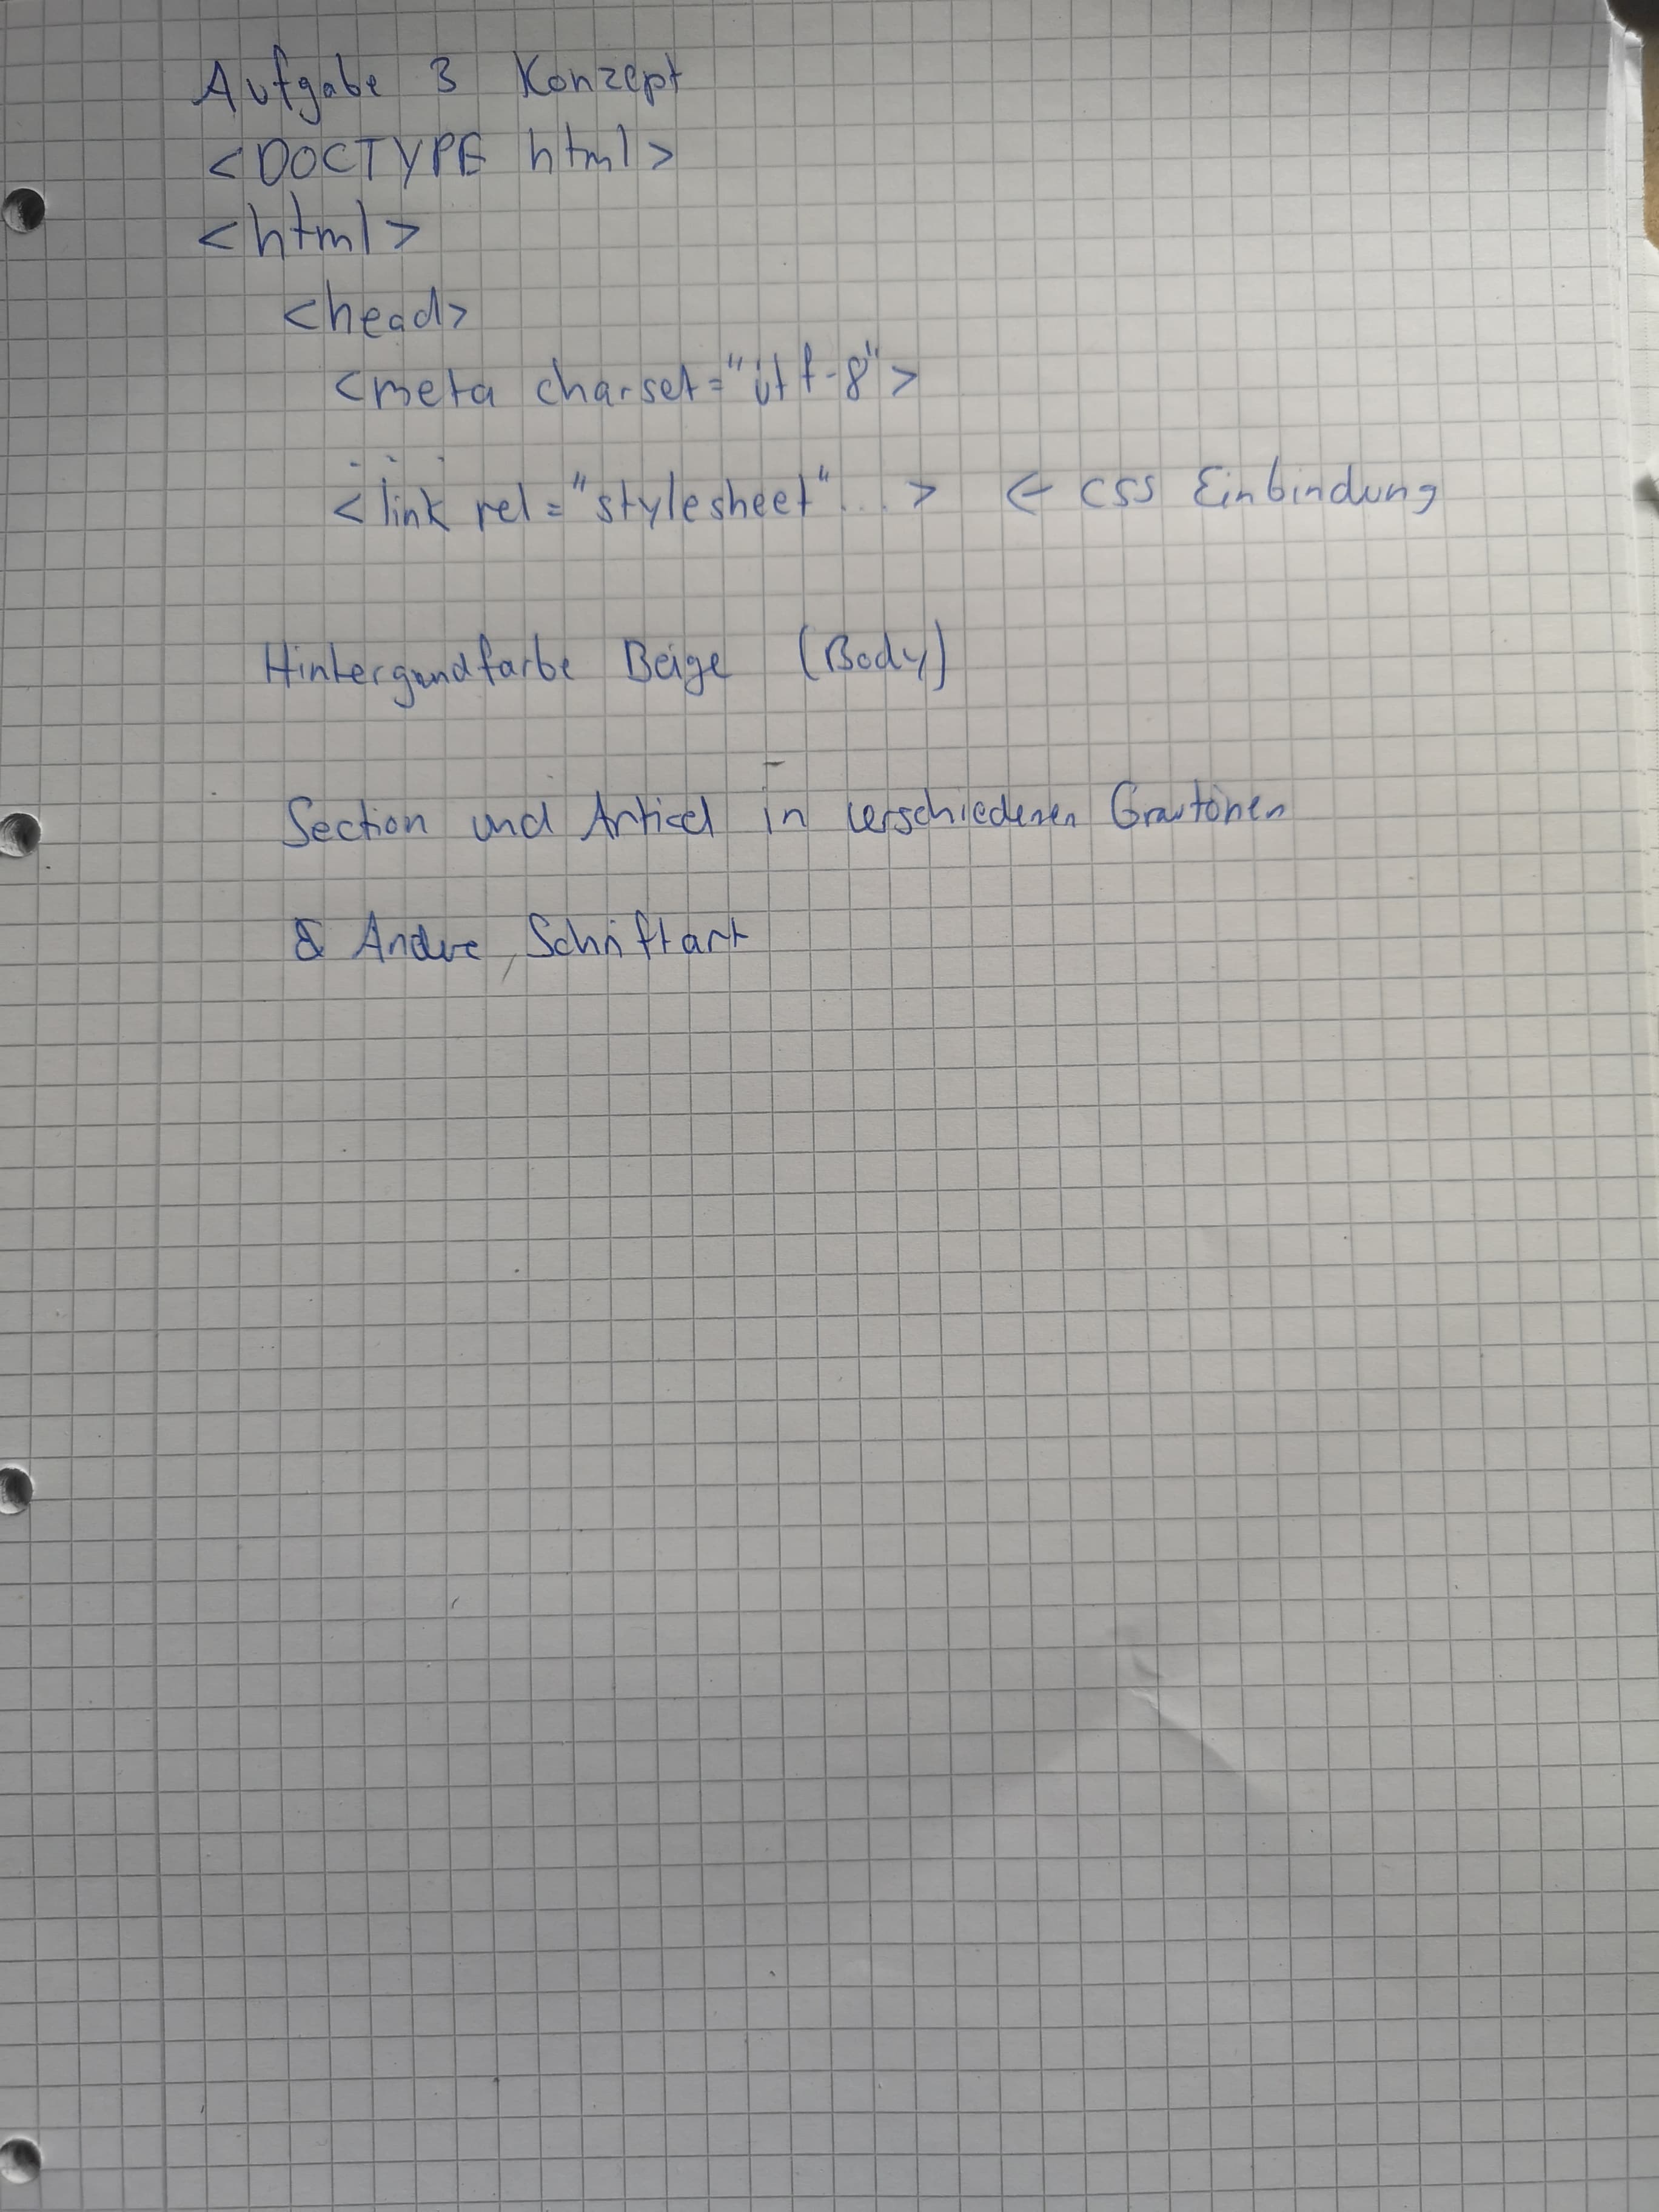 Aufgabe 3 Konzept
<DOCTYPE html>
<html>
<head>
<meta charset="utf-8">
...
<link rel="stylesheet"...> ← CSS Einbindung
Hintergrundfarbe Beige (Body)
Section und Articel in verschiedenen Grautönen
& Andere Schriftart